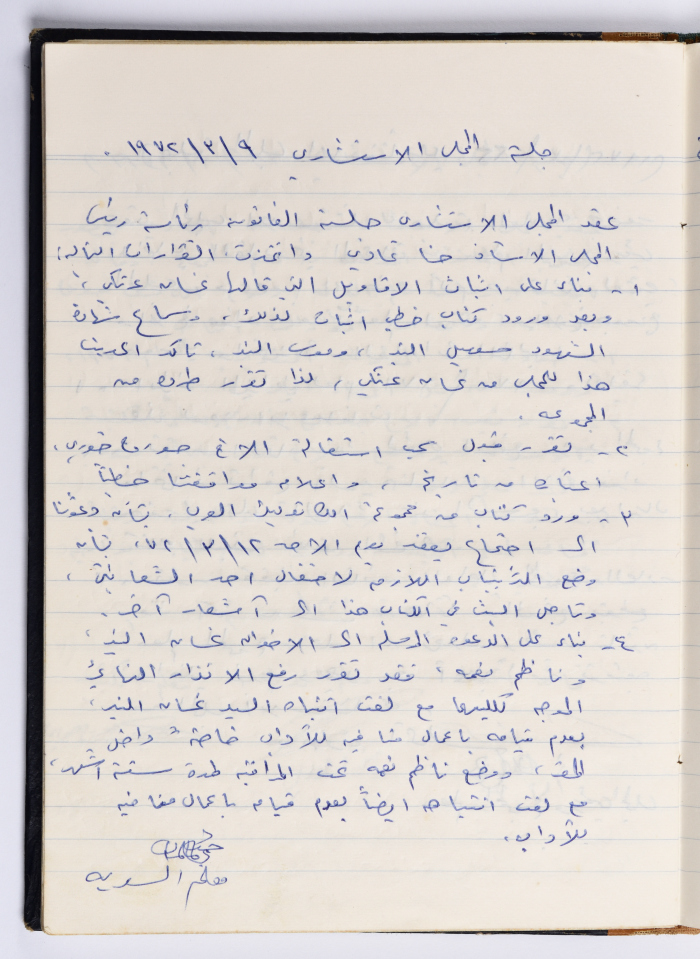 جلسة المجلس الاستشاري ٩/٣/١٩٧٢ .
عقد المجلس الاستشاري جلسته القانونية برئاسة رئيس
المجلس الاستاذ حنا واتخذت القرارات التالية:
١- بناء على اثبات الاقاويل التي قالها غسان عرنكي ،
وبعد ورود كتاب خطي اثبات لذلك ، وسماع شهادة
الشهود ، وموسى ، تأكد
هذا للمجلس من غسان عرنكي ، لذا تقرر طرده من
المجموعة .
٢- تقرر قبول سحب استقالة الاخ خوري ،
اعتباره من تاريخه ، واعلامه موافقتنا خطياً
٣- ورد كتاب من مجموعة العرب ، بشأن دعوتنا
الى اجتماع يعقد يوم الاحد ١٢/٣/٧٢ ، بشأن
وضع الترتيبات اللازمة لاحتفال احد الشعانين ،
وتأجل البث في الكتاب هذا الى آخر .
٤- بناء على الدعوة المرسلة الى الاخوان غسان ،
وناظم نعمه ، فقد تقرر رفع الانذار النهائي
الموجه لكليهما مع لفت انتباه السيد غسان ،
بعدم قيامه باعمال منافيه للآداب خاصةً داخل
المقر ، ووضع ناظم نعمه تحت المراقبة لمدة ستة اشهر ،
مع لفت انتباهه ايضاً بعدم قيامه باعمال منافيه
للآداب .
السرية